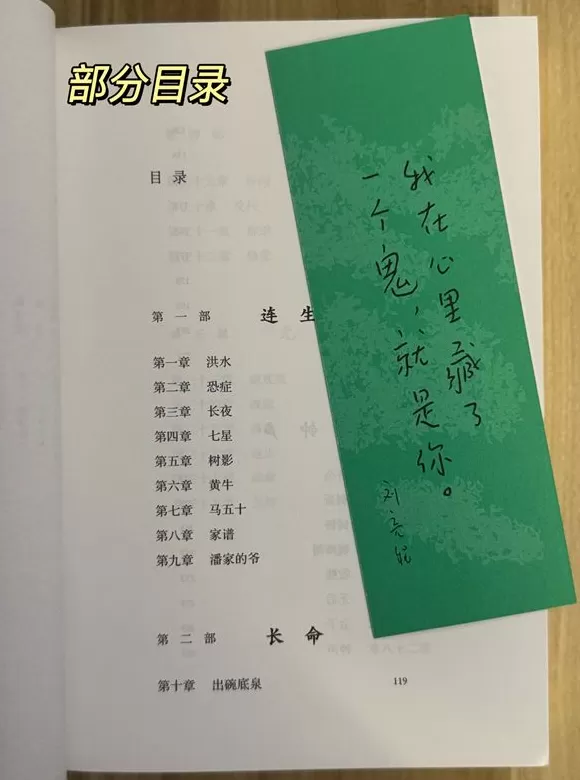 部分目录
目录
第一部 连生
第一章 洪水
第二章 恐症
第三章 长夜
第四章 七星
第五章 树影
第六章 黄牛
第七章 马五十
第八章 家谱
第九章 潘家的爷
第二部 长命
第十章 出碗底泉 119
我在心里藏了
一个鬼，就是你。
刘亮程